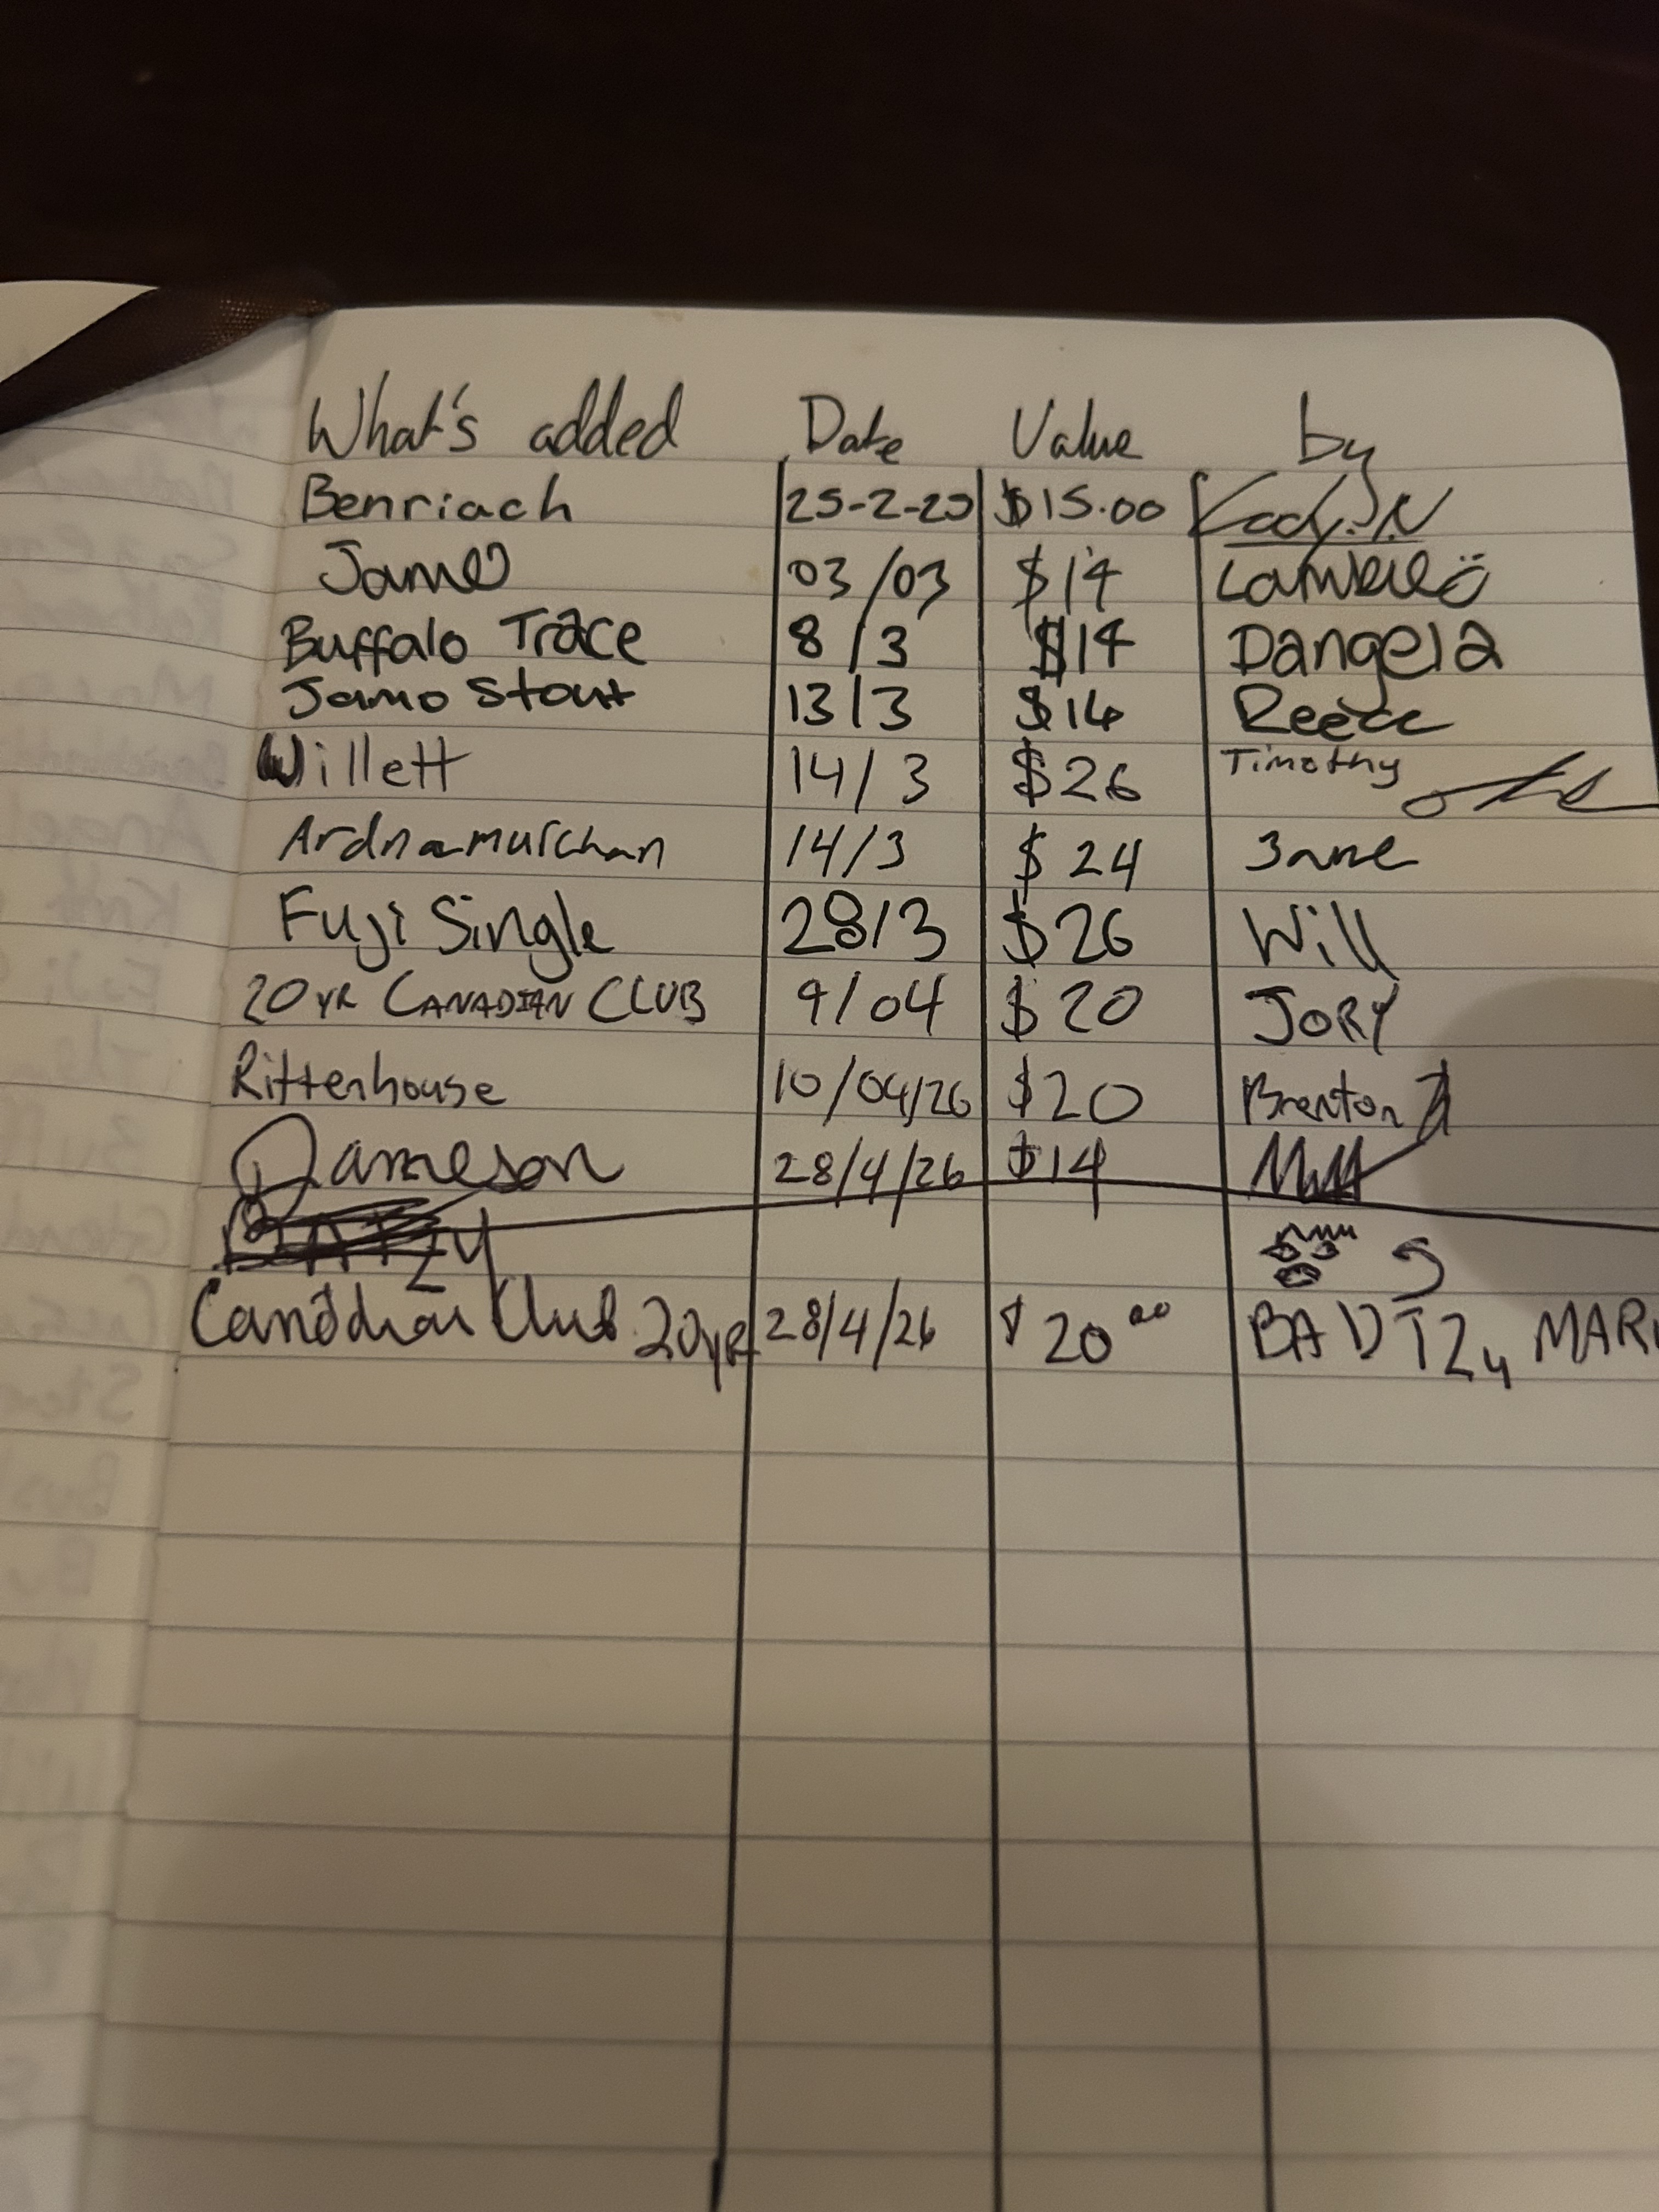 What's added Date Value by
Benriach 25-2-25 $15.00
Jamo 03/03 $14
Buffalo Trace 8/3 $14 Dangela
Jamo Stout 13/3 $14 Reece
Willett 14/3 $26 Timothy
Ardnamurchan 14/3 $24 Jane
Fuji Single 28/3 $26 Will
20 YR CANADIAN CLUB 9/04 $20 JORY
Rittenhouse 10/04/26 $20 Brenton
Jameson 28/4/26 $14 Matt
Canadian Club 20yr 28/4/26 $20.00 BADTZy MARU